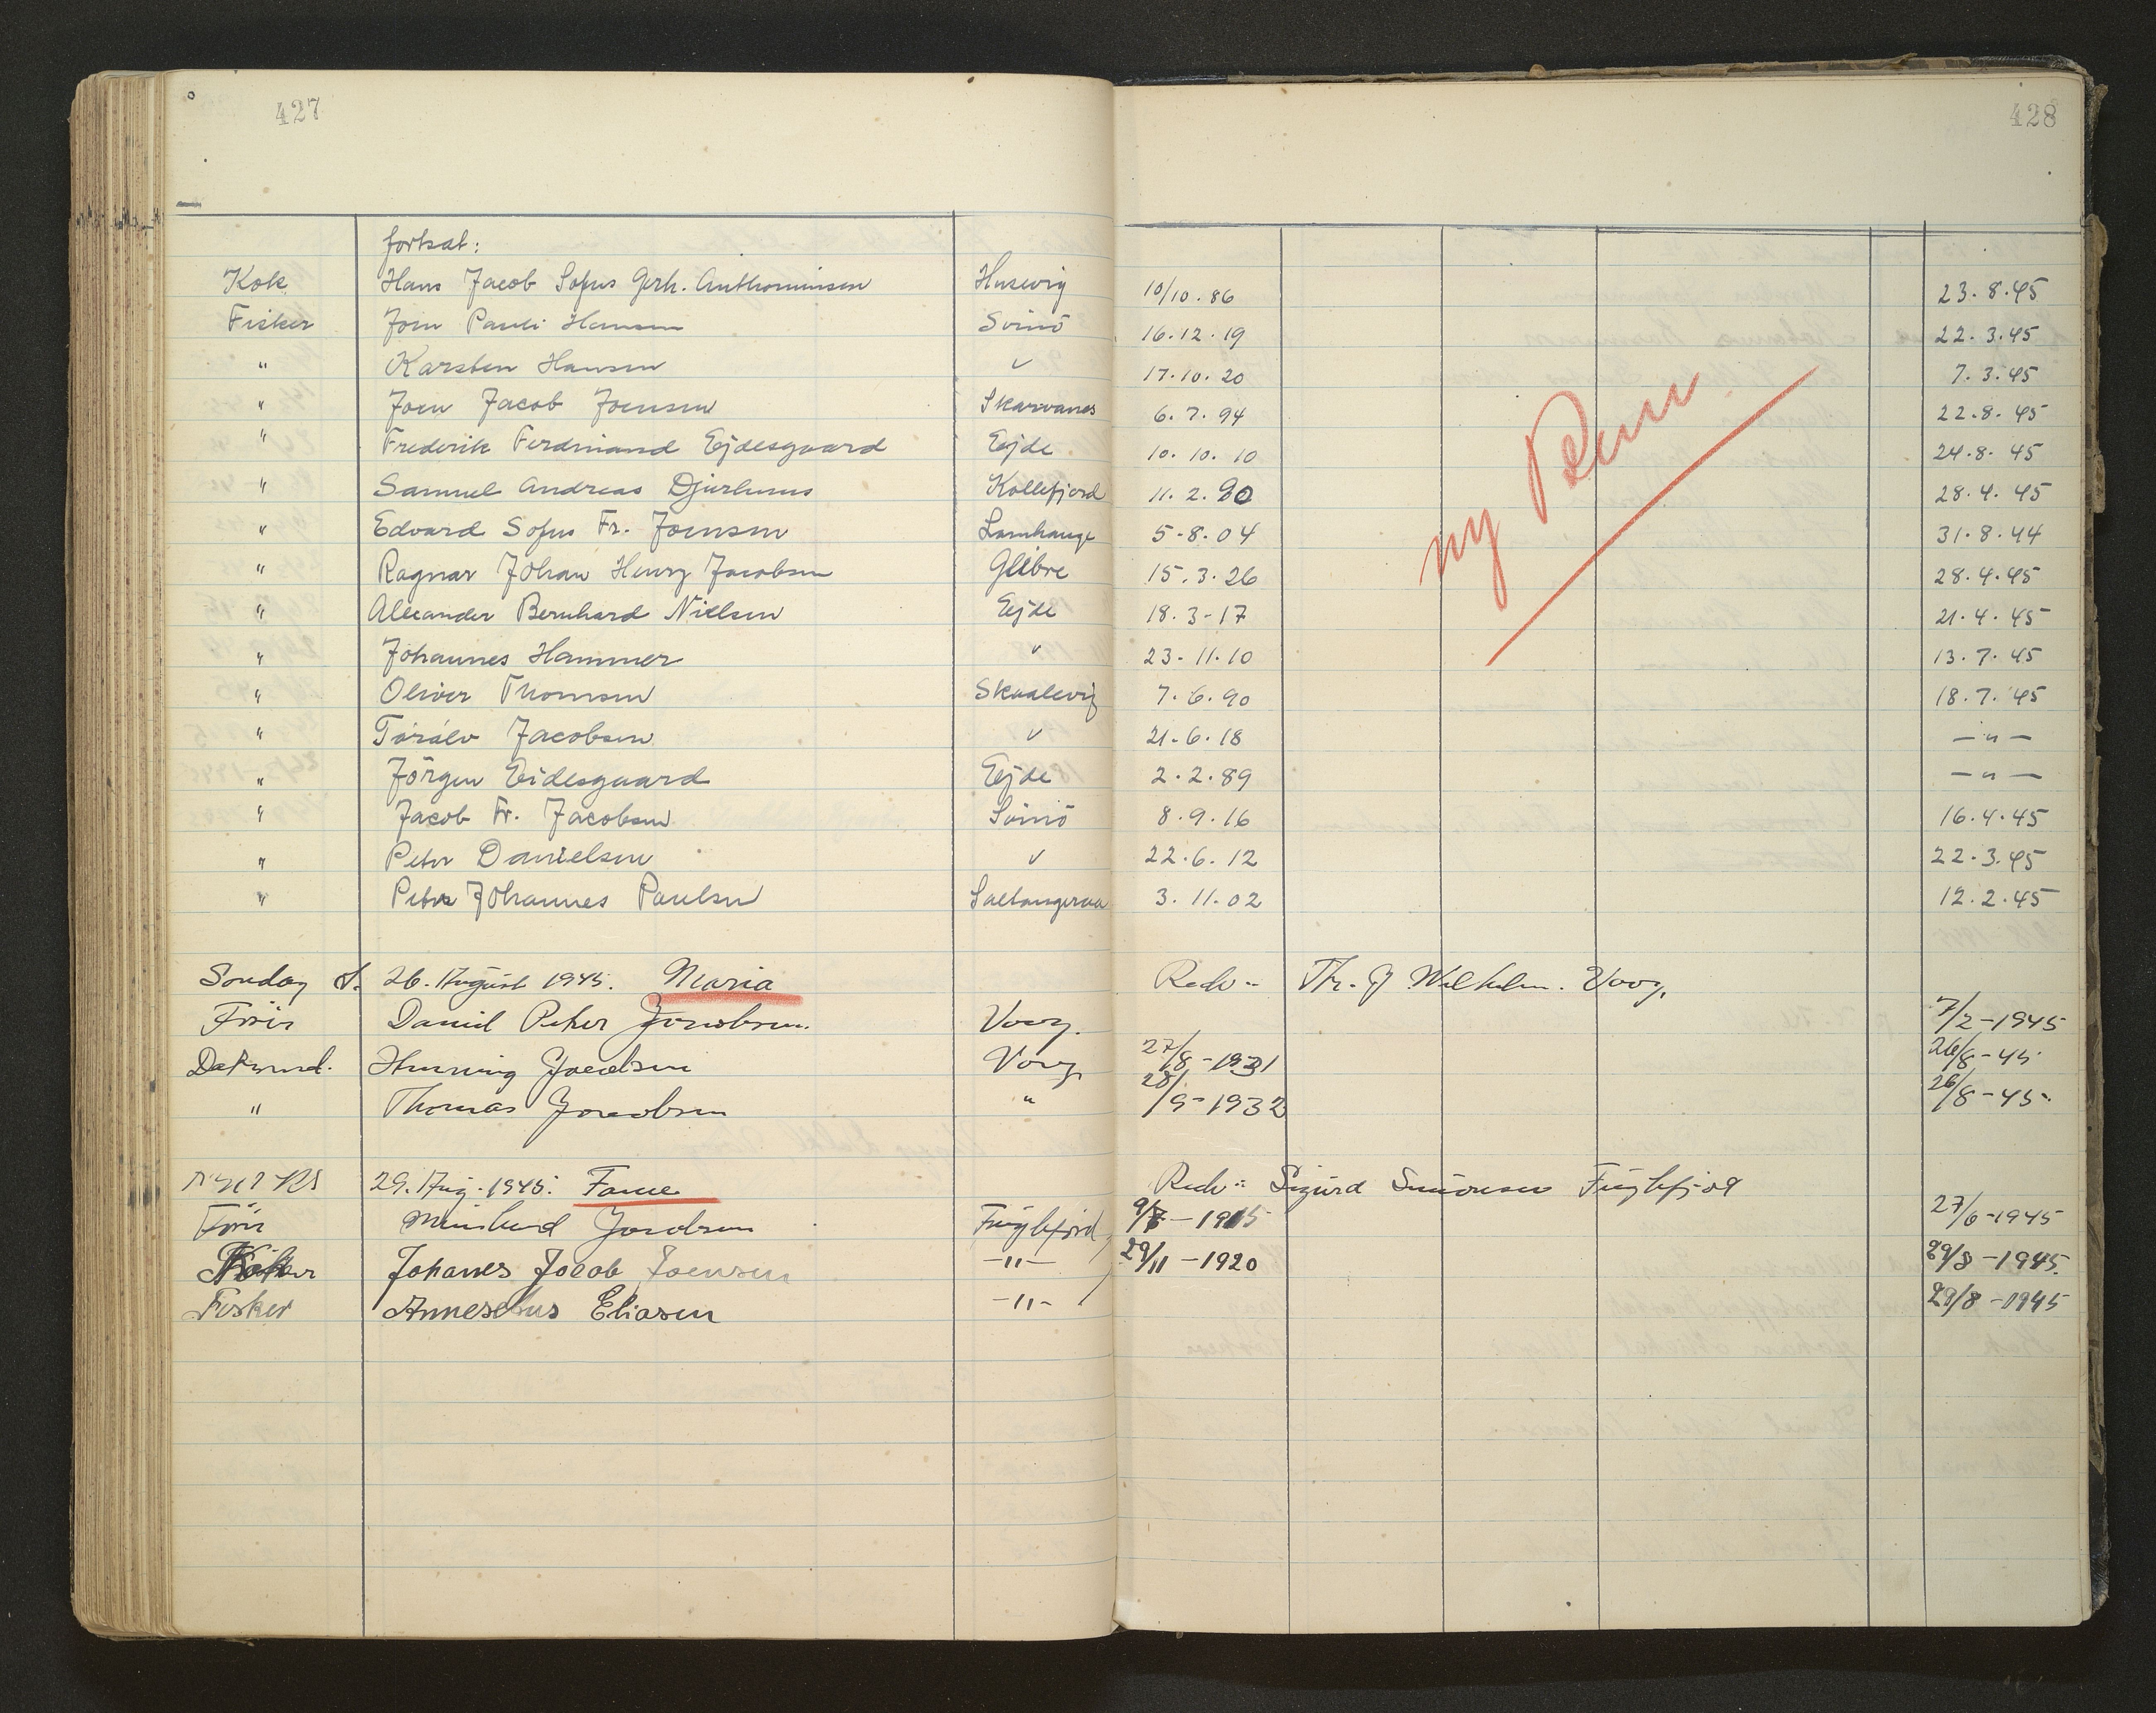 427
428
fortsat:
Kok Hans Jacob Sofus Gerh. Anthoniussen Husevig 10/10.86 23.8.45
Fisker Joen Pauli Hansen Svinö 16.12.19 22.3.45
" Karsten Hansen " 17.10.20 7.3.45
" Joen Jacob Joensen Skarvanes 6.7.94 22.8.45
" Frederik Ferdinand Ejdesgaard Ejde 10.10.10 24.8.45
" Samuel Andreas Djurhuus Kollefjord 11.2.90 28.4.45
" Edvard Sofus Fr. Joensen Lamhauge 5-8.04 31.8.44
" Ragnar Johan Henry Jacobsen Glibre 15.3.26 28.4.45
" Alexander Bernhard Nielsen Ejde 18.3-17 21.4.45
" Johannes Hammer " 23-11.10 13.7.45
" Oliver Thomsen Skaalevig 7.6.90 18.7.45
" Tórálv Jacobsen " 21-6.18 -"-
" Jörgen Eidesgaard Ejde 2.2.89 -"-
" Jacob Fr. Jacobsen Svinö 8.9.16 16.4.45
" Peter Danielsen " 22.6.12 22.3.45
" Peter Johannes Paulsen Saltangeraa 3.11.02 12.2.45
ny Rum
Sondag d. 26. August 1945. Maria Reder: Th. J. Wilhelm. Vaag.
Förer Daniel Peter Jacobsen. Vaag. 7/2-1945
Deksmd. Henning Jacobsen Vaag 27/8-1931 26/8-45
" Thomas Jacobsen " 28/9-1932 26/8-45.
29. Aug. 1945. Fame Reder: Sigurd Simonsen Fuglefjord
Förer Jacobsen Fuglefjord 27/6-1945
Johanes Jacob Joensen -"- 29/11-1920 29/8-1945.
Fisker Anneselius Eliasen -"- 29/8-1945